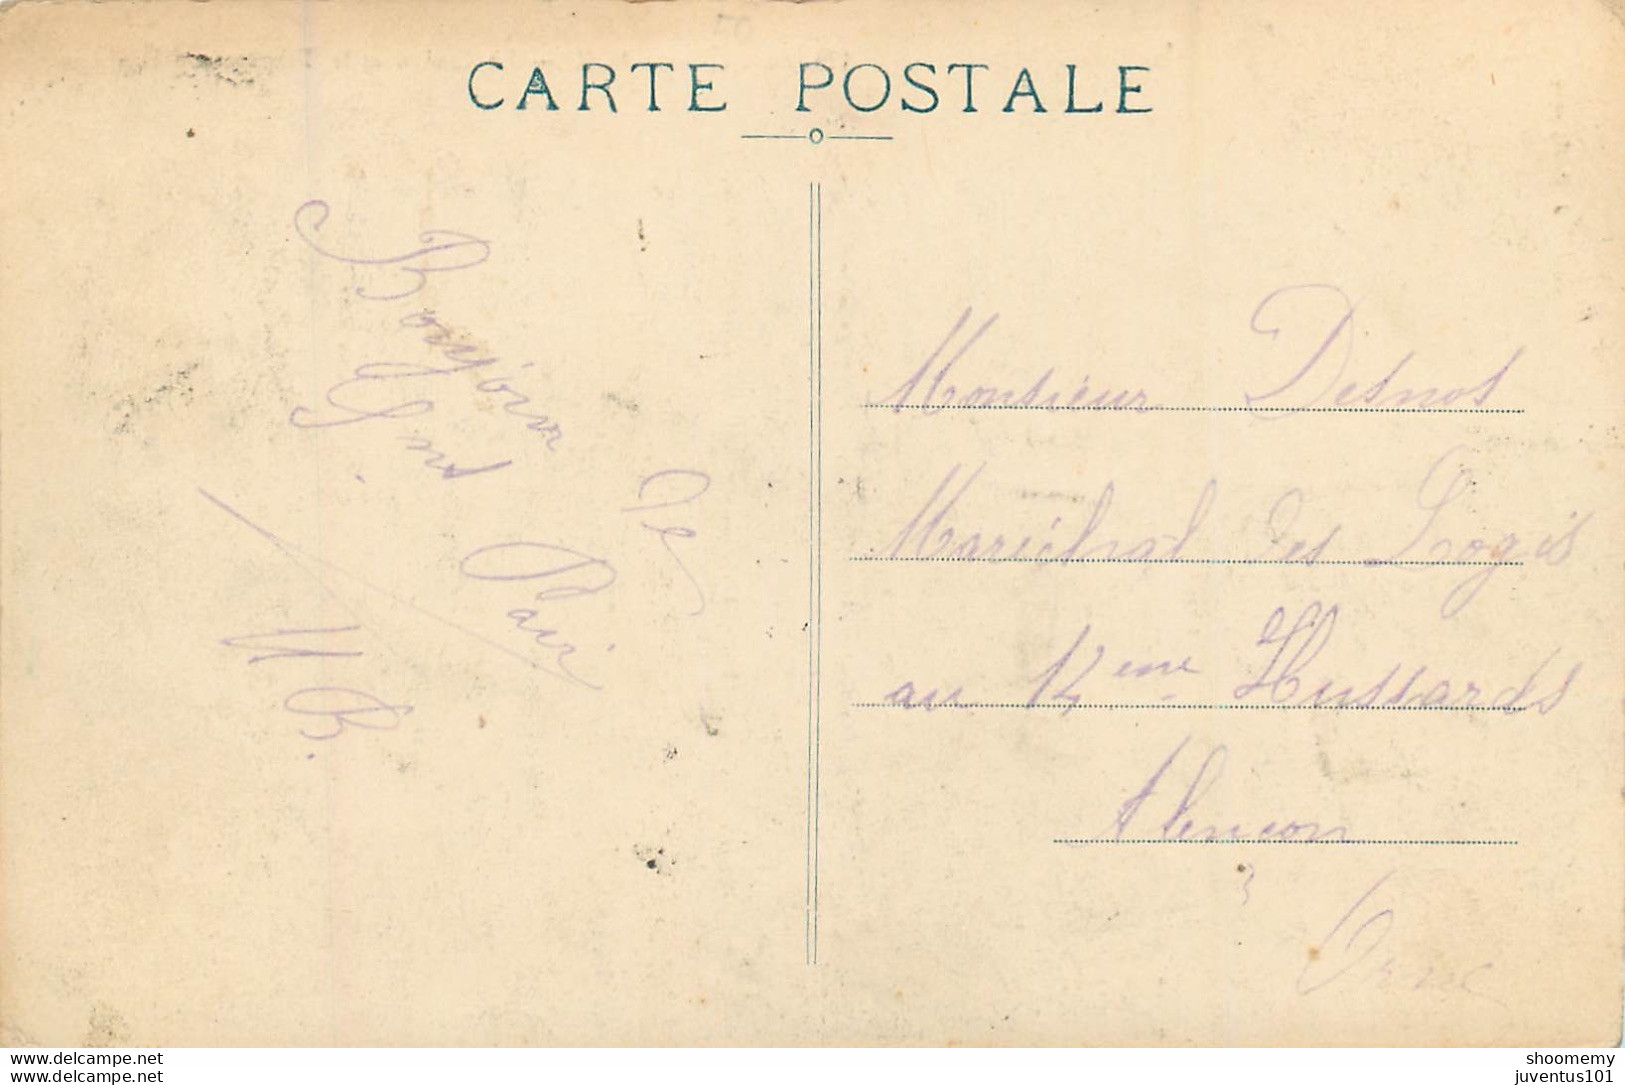 CARTE POSTALE
Bonjour de
St Pair
M B.
Monsieur Desnos
Maréchal des Logis
au 14eme Hussards
Alencon
Orne
www.delcampe.net
www.delcampe.net
shoomemy
juventus101